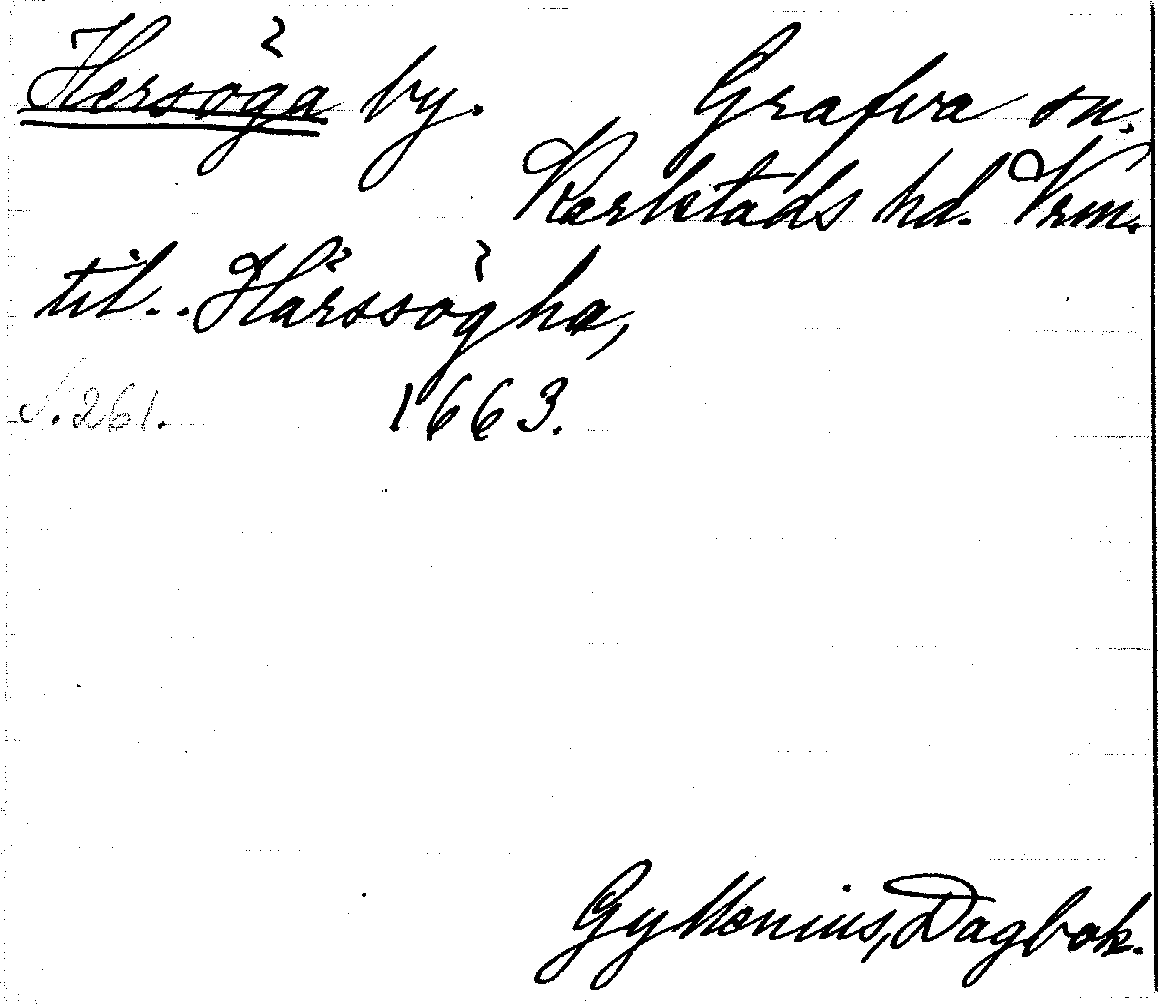 Hersöga by. Grafva sn.
Karlstads hd. Vrm.
til.. Härssögha,
S. 261. 1663.
Gyllenius, Dagbok.